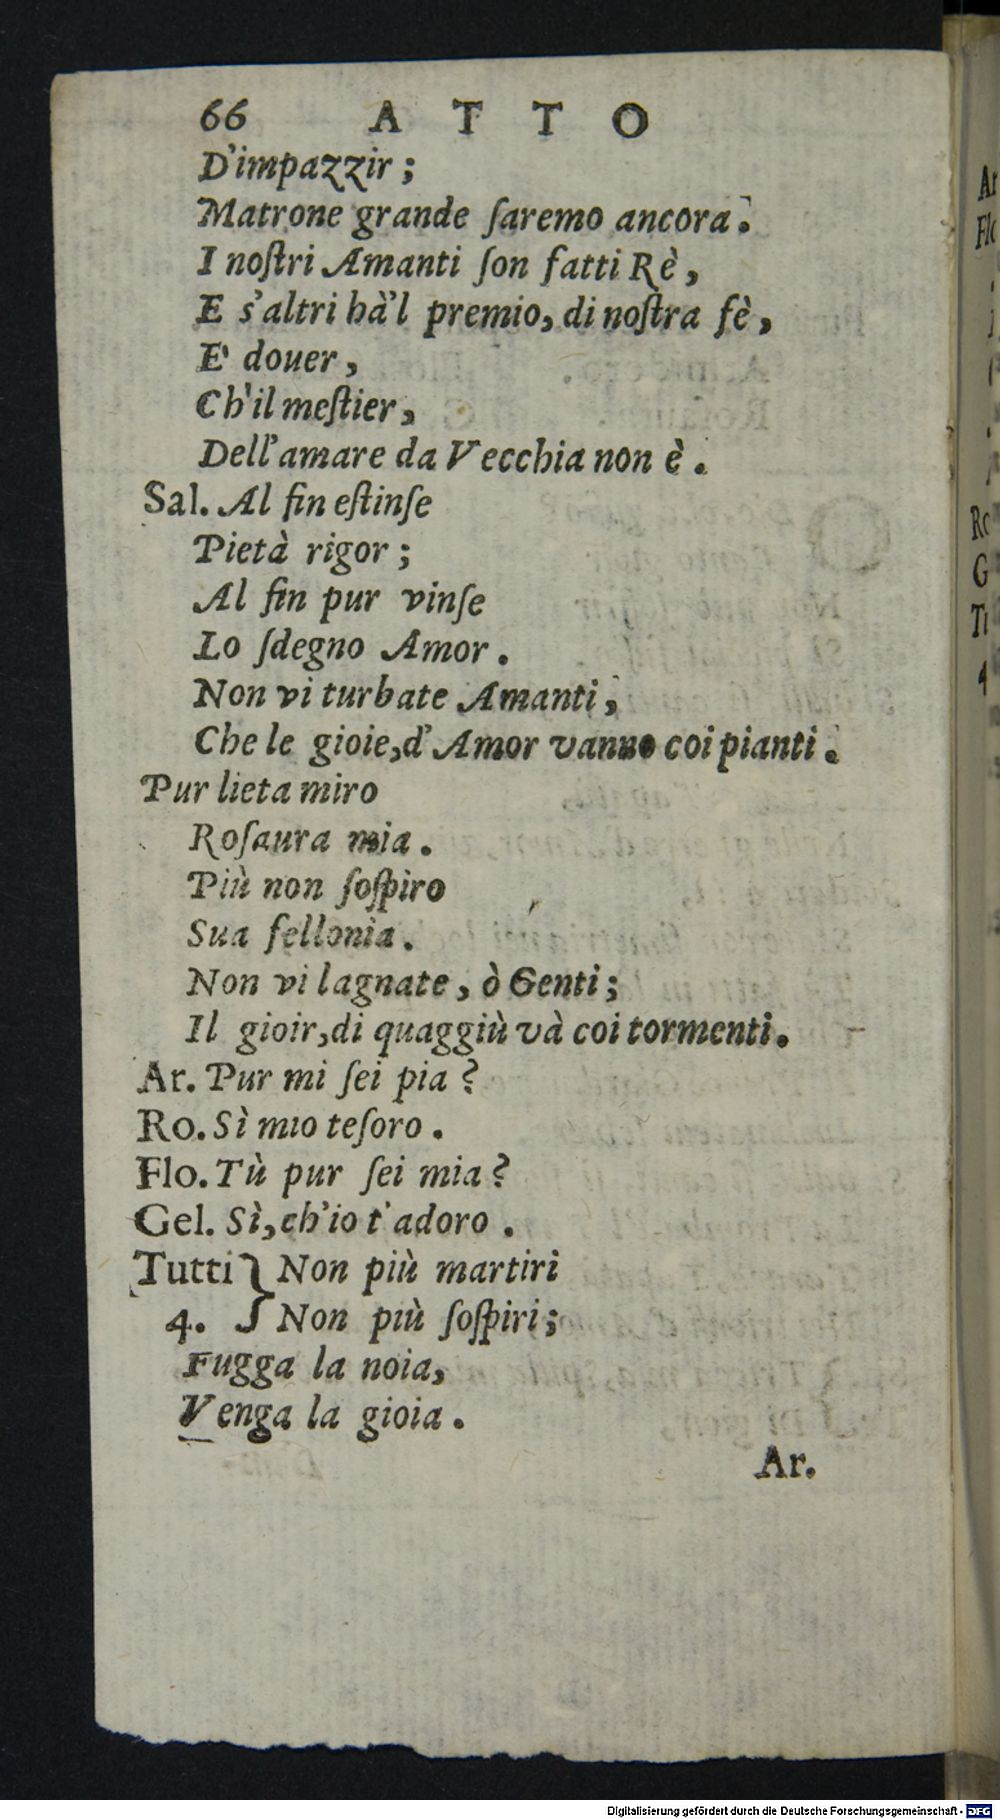 66 ATTO
D'impazzir;
Matrone grande ſaremo ancora.
I noſtri Amanti ſon fatti Rè,
E s'altri hà'l premio, di noſtra fè,
E' douer,
Ch'il meſtier,
Dell'amare da Vecchia non è.
Sal. Al fin eſtinſe
Pietà rigor;
Al fin pur vinſe
Lo ſdegno Amor.
Non vi turbate Amanti;
Che le gioie, d'Amor vanno coi pianti.
Pur lieta miro
Roſaura mia.
Più non ſoſpiro
Sua fellonia.
Non vi lagnate, ò Genti;
Il gioir, di quaggiù và coi tormenti.
Ar. Pur mi ſei pia?
Ro. Sì mio teſoro.
Flo. Tù pur ſei mia?
Gel. Sì, ch'io t'adoro.
Tutti } Non più martiri
4. } Non più ſoſpiri;
Fugga la noia,
Venga la gioia.
Ar.
Ar
Flo
Ro
G
Digitalisierung gefördert durch die Deutsche Forschungsgemeinschaft - DFG